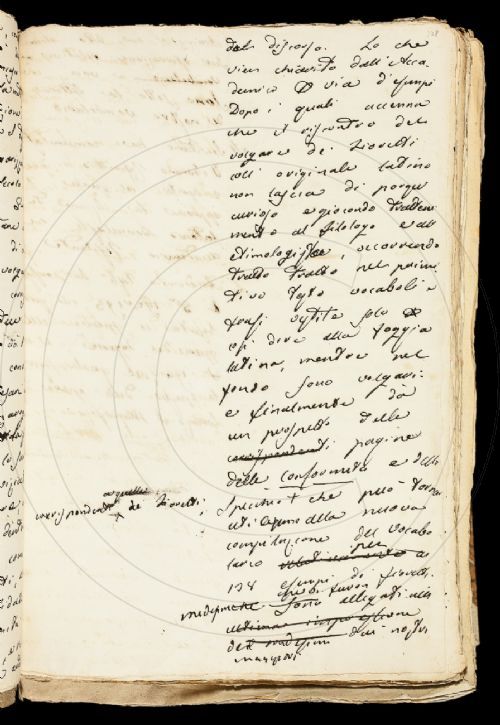 del discorso. Lo che
vien chiarito dall'Acca
demico per via d'esempi
Dopo i quali accenna
che il riscontro del
volgare dei Fioretti
coll originale latino
non lascia di porger
curioso e giocondo tratteni
mento al filologo e all
etimologista, occorrendo
tratto tratto nel primi
tivo testo vocaboli e
frasi vestite solo
così dire alla foggia
latina, mentre nel
fondo sono volgari:
e finalmente dà
un prospetto delle
corrispondenti pagine
delle conformità e dello
Specchio + che può tornar
utilissimo alla nuova
compilazione del Vocabo
lario per
138 esempi di Fioretti
che di furon
medesime sono allegati
ultima impressione
dai nostri
maggiori
a quelle
corrispondenti de' Fioretti;